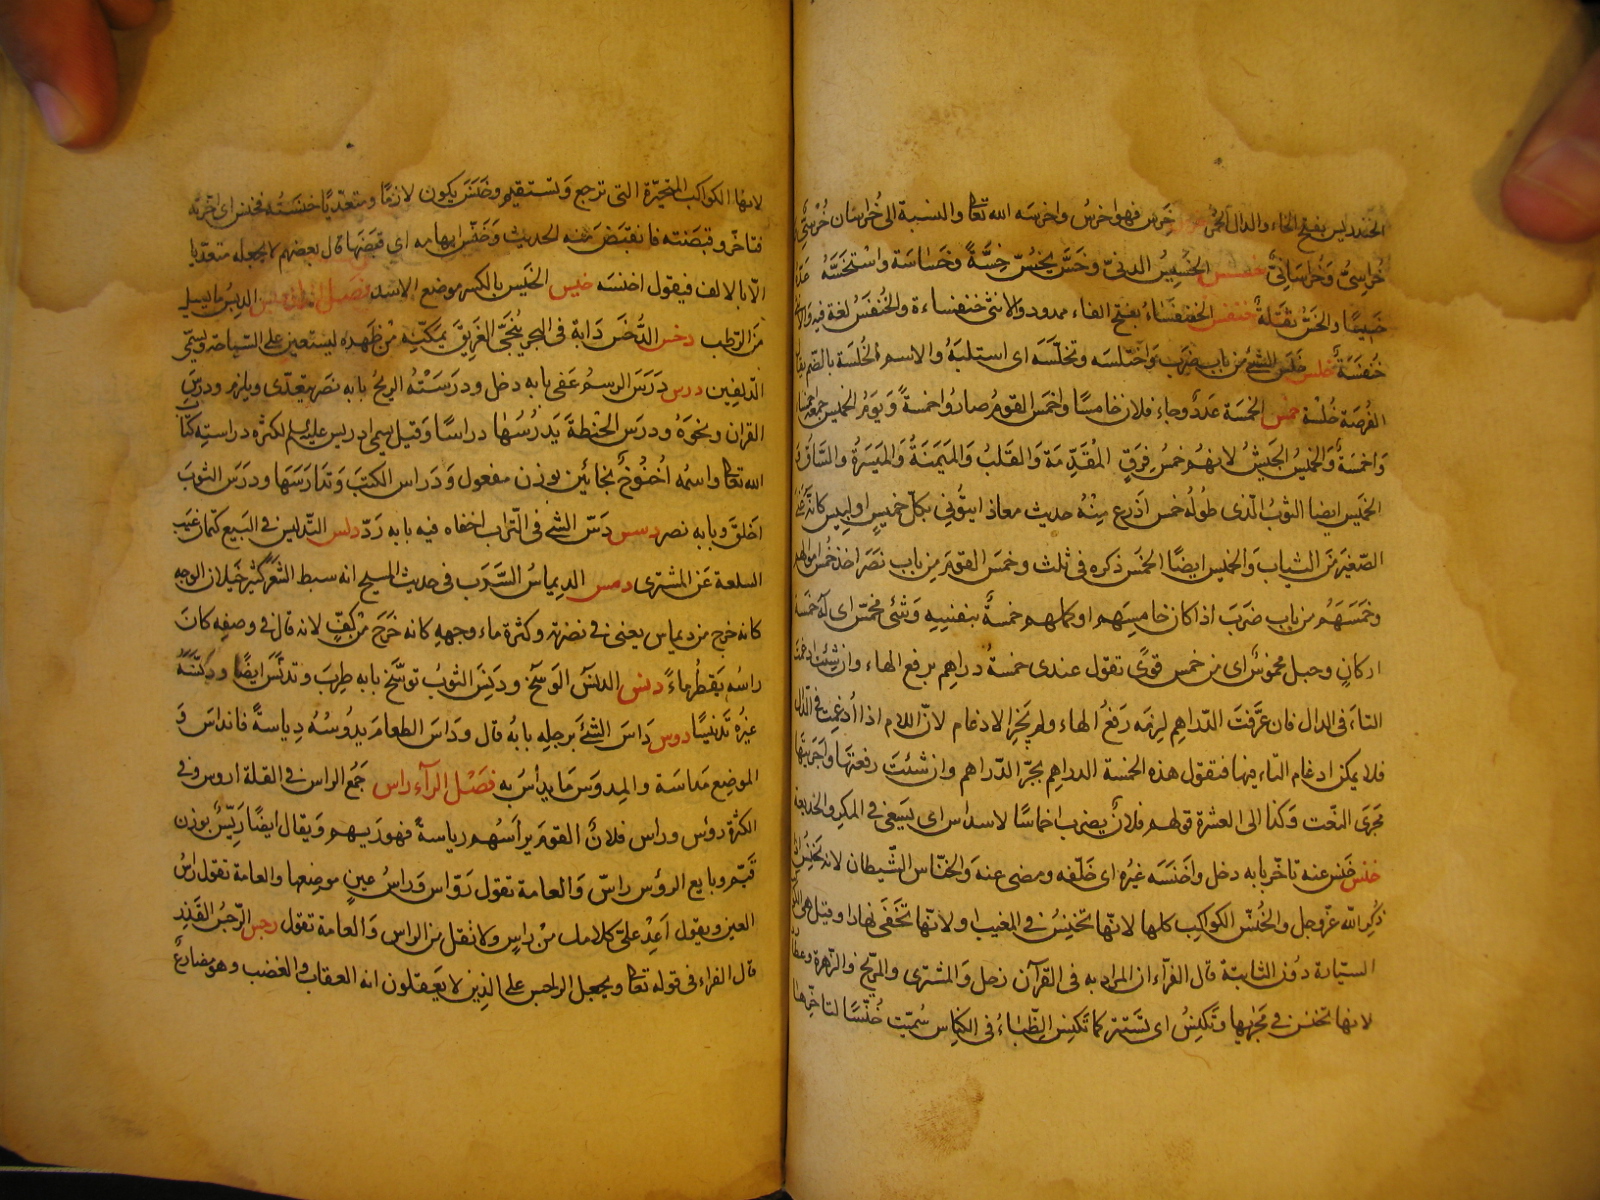 الخندريس بفتح الخاء والدال الخمر خرس خرس فهو اخرس واخرسه الله تعالى والنسبة الى خراسان خُرْسِيٌّ
خُراسيٌّ وَخُراسَانيٌّ خسس الخَسِيسُ الدنىّ وخَسَّ يخسّ خِسَّةً وخَسَاسَة واسْتَخَسَّهُ عدّه
خَسِيسًا والخَسُّ بَقْلَة خنفس الخُنفَسَاءُ بفتح الفاء ممدود والانثى خنفساءة والخُنْفَسُ لغة فيه والانثى
خُنْفَسَةٌ خلس خَلَسَ الشئ من باب ضرب وَاختلسه وتخلّسَه اى استلبَهُ والاسم الخُلسَة بالضم يقال
الفُرصَة خُلْسَة خمس الخمسَة عَدَدٌ وجاء فلان خامسًا واخْمَس القومُ صارُوا خمسةً وَيَوْمُ الخميس جمعه اخمساء
وَاخمسَةٌ والخَميسُ الجَيشُ لانهم خمسُ فِرَقٍ المُقَدِّمَة وَالقَلبُ وَالمَيْمَنَةُ وَالمَيسَرَةُ والسّاقَة و
الخَمِيس ايضا الثوبُ الّذى طُولُهُ خمس اَذرُع مِنْهُ حديث معاذ ايتُونى بكلّ خميسٍ او لبيس كانّه عنى
الصّغيرَ مَنَ الثياب وَالخميس ايضًا الخمسُ ذكره فى ثلث وخمسَ القومَ مِن باب نصَرَ اخذ خُمس اموالهم
وخمَسَهُم من باب ضرَبَ اذا كان خامسَهم او كملهم خمسةً بنفسِهِ وشئ مخمّس اى له خمسة
اركانٍ وحبل مخموسٌ اى من خمس قوًى تقول عندى خمسةُ دراهم برفع الهاء وان شئت ادغمت
التاءَ فى الدال فان عَرّفت الدّراهم لزِمَه رَفعُ الهاء ولم يَجُز الادغام لانّ اللام اذا اُدغِمَت فى الدّال
فلا يمكن ادغام التاء فيها فتقول هذه الخمسة الدراهم بجرّ الدّراهم وان شئت رفعتهَا واجريتها
مجرَى النّعت وَكذا الى العشرة قولهم فلانٌ يضرب اخماسًا لاسداس اى يَسعَى فى المكر والخديعة
خنس خَنسَ عنه تاخّر بابه دخل واخنَسَه غيرُه اى خَلّفه ومضى عنه وَالخنّاس الشّيطان لانه يَخنِسُ اذا
ذُكِر اللّه عزّوجل والخُنّس الكواكب كلها لانّها تخنِسُ فى المغيب او لانّها تَخفَى نهارا وقيل هى الكواكب
السّيّارة دُونَ الثّابتة قال الفرّاء ان المراد به فى القرآن زحل والمشترى والمرّيخ والزّهرة وعطارد
لانها تخنس فى مَجْرَيها وتَكنِسُ اى تستتر كما تَكنِس الظِباءُ فى الكِناس سُمّيت خُنَّسًا لتاخّرها
لانها الكواكب المتحيّرة التى ترجع وَتَستقيم وخَنَسَ يكون لازمًا ومتعدّيًا خنسَتُه فخنس اى اخّرته
فتاخّر وقبضتَه فانقبَضَ منه الحديث وَخَنَسَ ابهامه اى قبَضَهَا قال بعضهم لا يجعله متعدّيا
الّا بالالف فيقول اخنسَه خيس الخِيس بالكسر موضع الاسد فصل الدال دبس الدِبسُ ما يسيل
مَنَ الرّطب دخس الدُّخَس دَابّة فى البحر يُنَجّى الغَرِيقَ يمكّنِه مِنْ ظَهره ليستعين على السّباحة ويسمّى
الدّلفين درس دَرَسَ الرسمُ عَفى بابه دخل ودرسَتْهُ الريحُ بابه نصَر يتعدّى ويلزم ودرس
القرآن ونحوَهُ ودرس الحنطةَ يَدرُسُها دراسًا وقيل سمى ادريس عليه السلام لكثرة دراسته كتاب
الله تعالى واسمُه اُخنُوخ بخائين بوزن مفعول ودارس الكتبَ وَتدارَسَهَا ودرَسَ الثوبُ
اخلقَ وبابه نصر دسس دَسّ الشئ فى التراب اخفاه فيه بابه ردّ دلس التّدليس فى البَيع كتمان عيب
السلعة عَن المشترى دمس الديماسُ السَّرَب فى حديث المسيح انه سبط الشّعر كثير خيلان الوجه
كانه خرج من ديماس يعنى فى نضرته وكثرة ماء وجهه كانه خَرَجَ مِن كِنٍّ لانه قال فى وصفِه كان
راسُه يقطُر ماءً دنس الدنسُ الوَسَخ ودَنِسَ الثوبُ توسّخَ بابه طرِبَ وتدنّسَ ايضًا ودنّسَهُ
غيرُه تدنيسًا دوس دَاسَ الشئَ برجله بابُه قال ودَاسَ الطعامَ يدُوسُهُ دِياسةً فانداسَ وَ
الموضِع مَدَاسَة والمِدوَسُ مَا يدَاسُ به فصل الرآء راس جَمعُ الراس فى القلة ارؤس وفى
الكثرة رؤس وراس فلانٌ القومَ يرأسُهم رياسةً فهو رَيسهم وَيقال ايضًا رَيِّسٌ بوزن
قيّم وبايع الرؤس راسّ وَالعامة تقول رَوّاس وَراسُ عينٍ موضعها والعامة تقول راسُ
العين ويقول اَعِدْ علىّ كلامك مِنْ راسٍ ولا تقل من الراس وَالعامة تقول رجس الرّجسُ القَذِر
قال الفراء فى قوله تعالى ويجعل الرجس على الذِين لا يعقلون انه العقاب والغضب وهو مضارعٌ